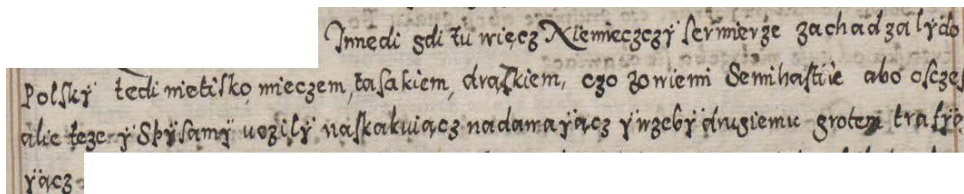 Innędi gdi tu więcz Niemieczczÿ sermierze zachadzalÿ do
Polskÿ tedi nietilko mieczem, tasakiem, drążkiem, czo zowiemi Semihastiie abo osczep
alie teze ÿ Spÿsamÿ uczilÿ naskakuiącz nadawaÿącz ÿ wzebÿ drugiemu grotem trafÿo
ÿącz